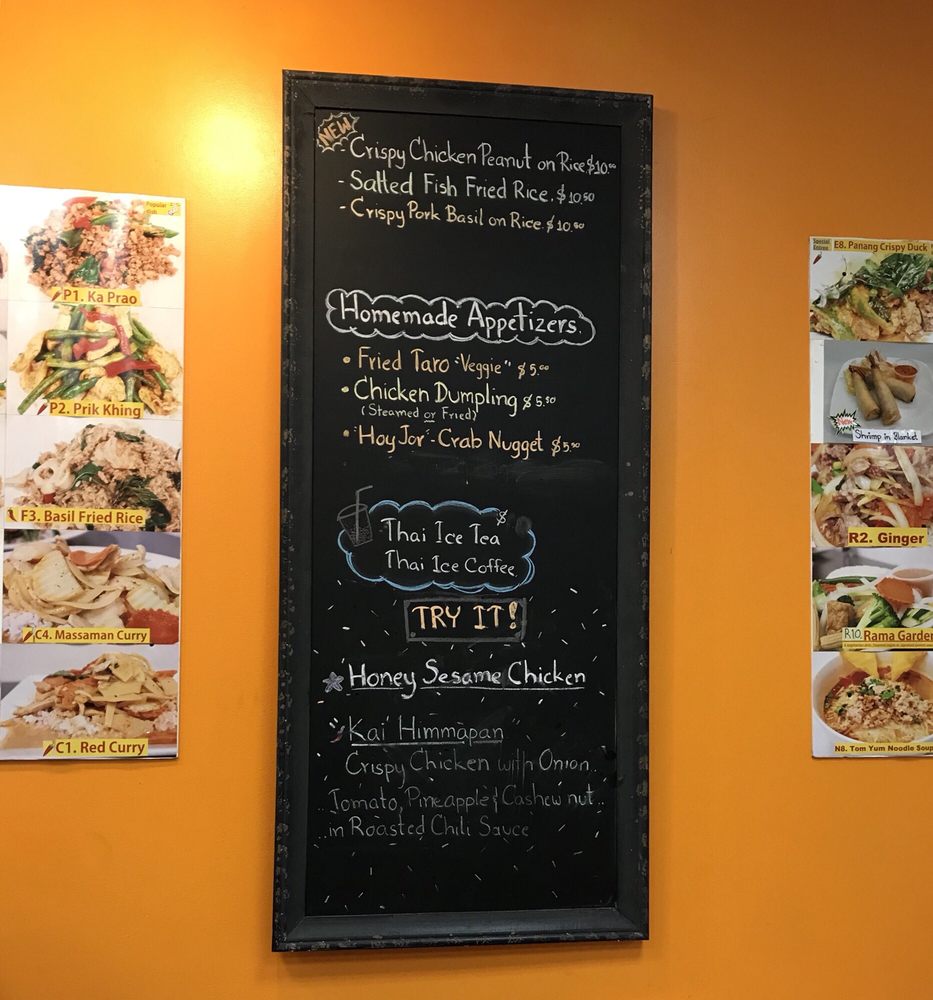 Popular
Dish
P1. Ka Prao
P2. Prik Khing
F3. Basil Fried Rice
C4. Massaman Curry
C1. Red Curry
NEW
- Crispy Chicken Peanut on Rice $10.00
- Salted Fish Fried Rice. $10.50
- Crispy Pork Basil on Rice. $10.00
Homemade Appetizers.
• Fried Taro "Veggie" $5.00
• Chicken Dumpling $5.50
(Steamed or Fried)
• "Hoy Jor" - Crab Nugget $5.50
$
Thai Ice Tea
Thai Ice Coffee
TRY IT!
Honey Sesame Chicken
Kai Himmapan
Crispy Chicken with Onion
Tomato, Pineapple & Cashew nut..
..in Roasted Chili Sauce
Special
Entree
E8. Panang Crispy Duck
New
Shrimp in Blanket
R2. Ginger
R10. Rama Garden
N8. Tom Yum Noodle Soup